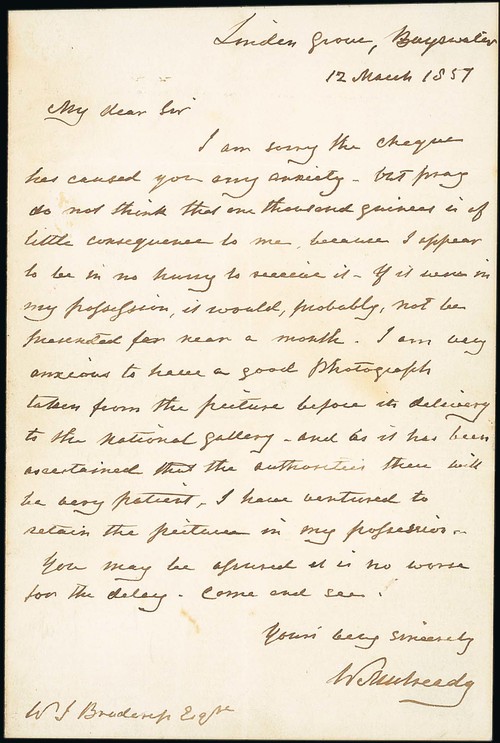 Linden Grove, Bayswater
12 March 1857
My dear Sir
I am sorry the cheque
has caused you any anxiety - but pray
do not think that one thousand guineas is of
little consequence to me, because I appear
to be in no hurry to receive it - If it were in
my possession, it would, probably, not be
presented for near a month. I am very
anxious to have a good Photograph
taken from the picture before its delivery
to the national gallery - and as it has been
ascertained that the authorities there will
be very patient, I have ventured to
retain the picture in my possession.
You may be assured it is no worse
for the delay. Come and see.
Yours very sincerely
W Mulready
W J Broderip Esqre